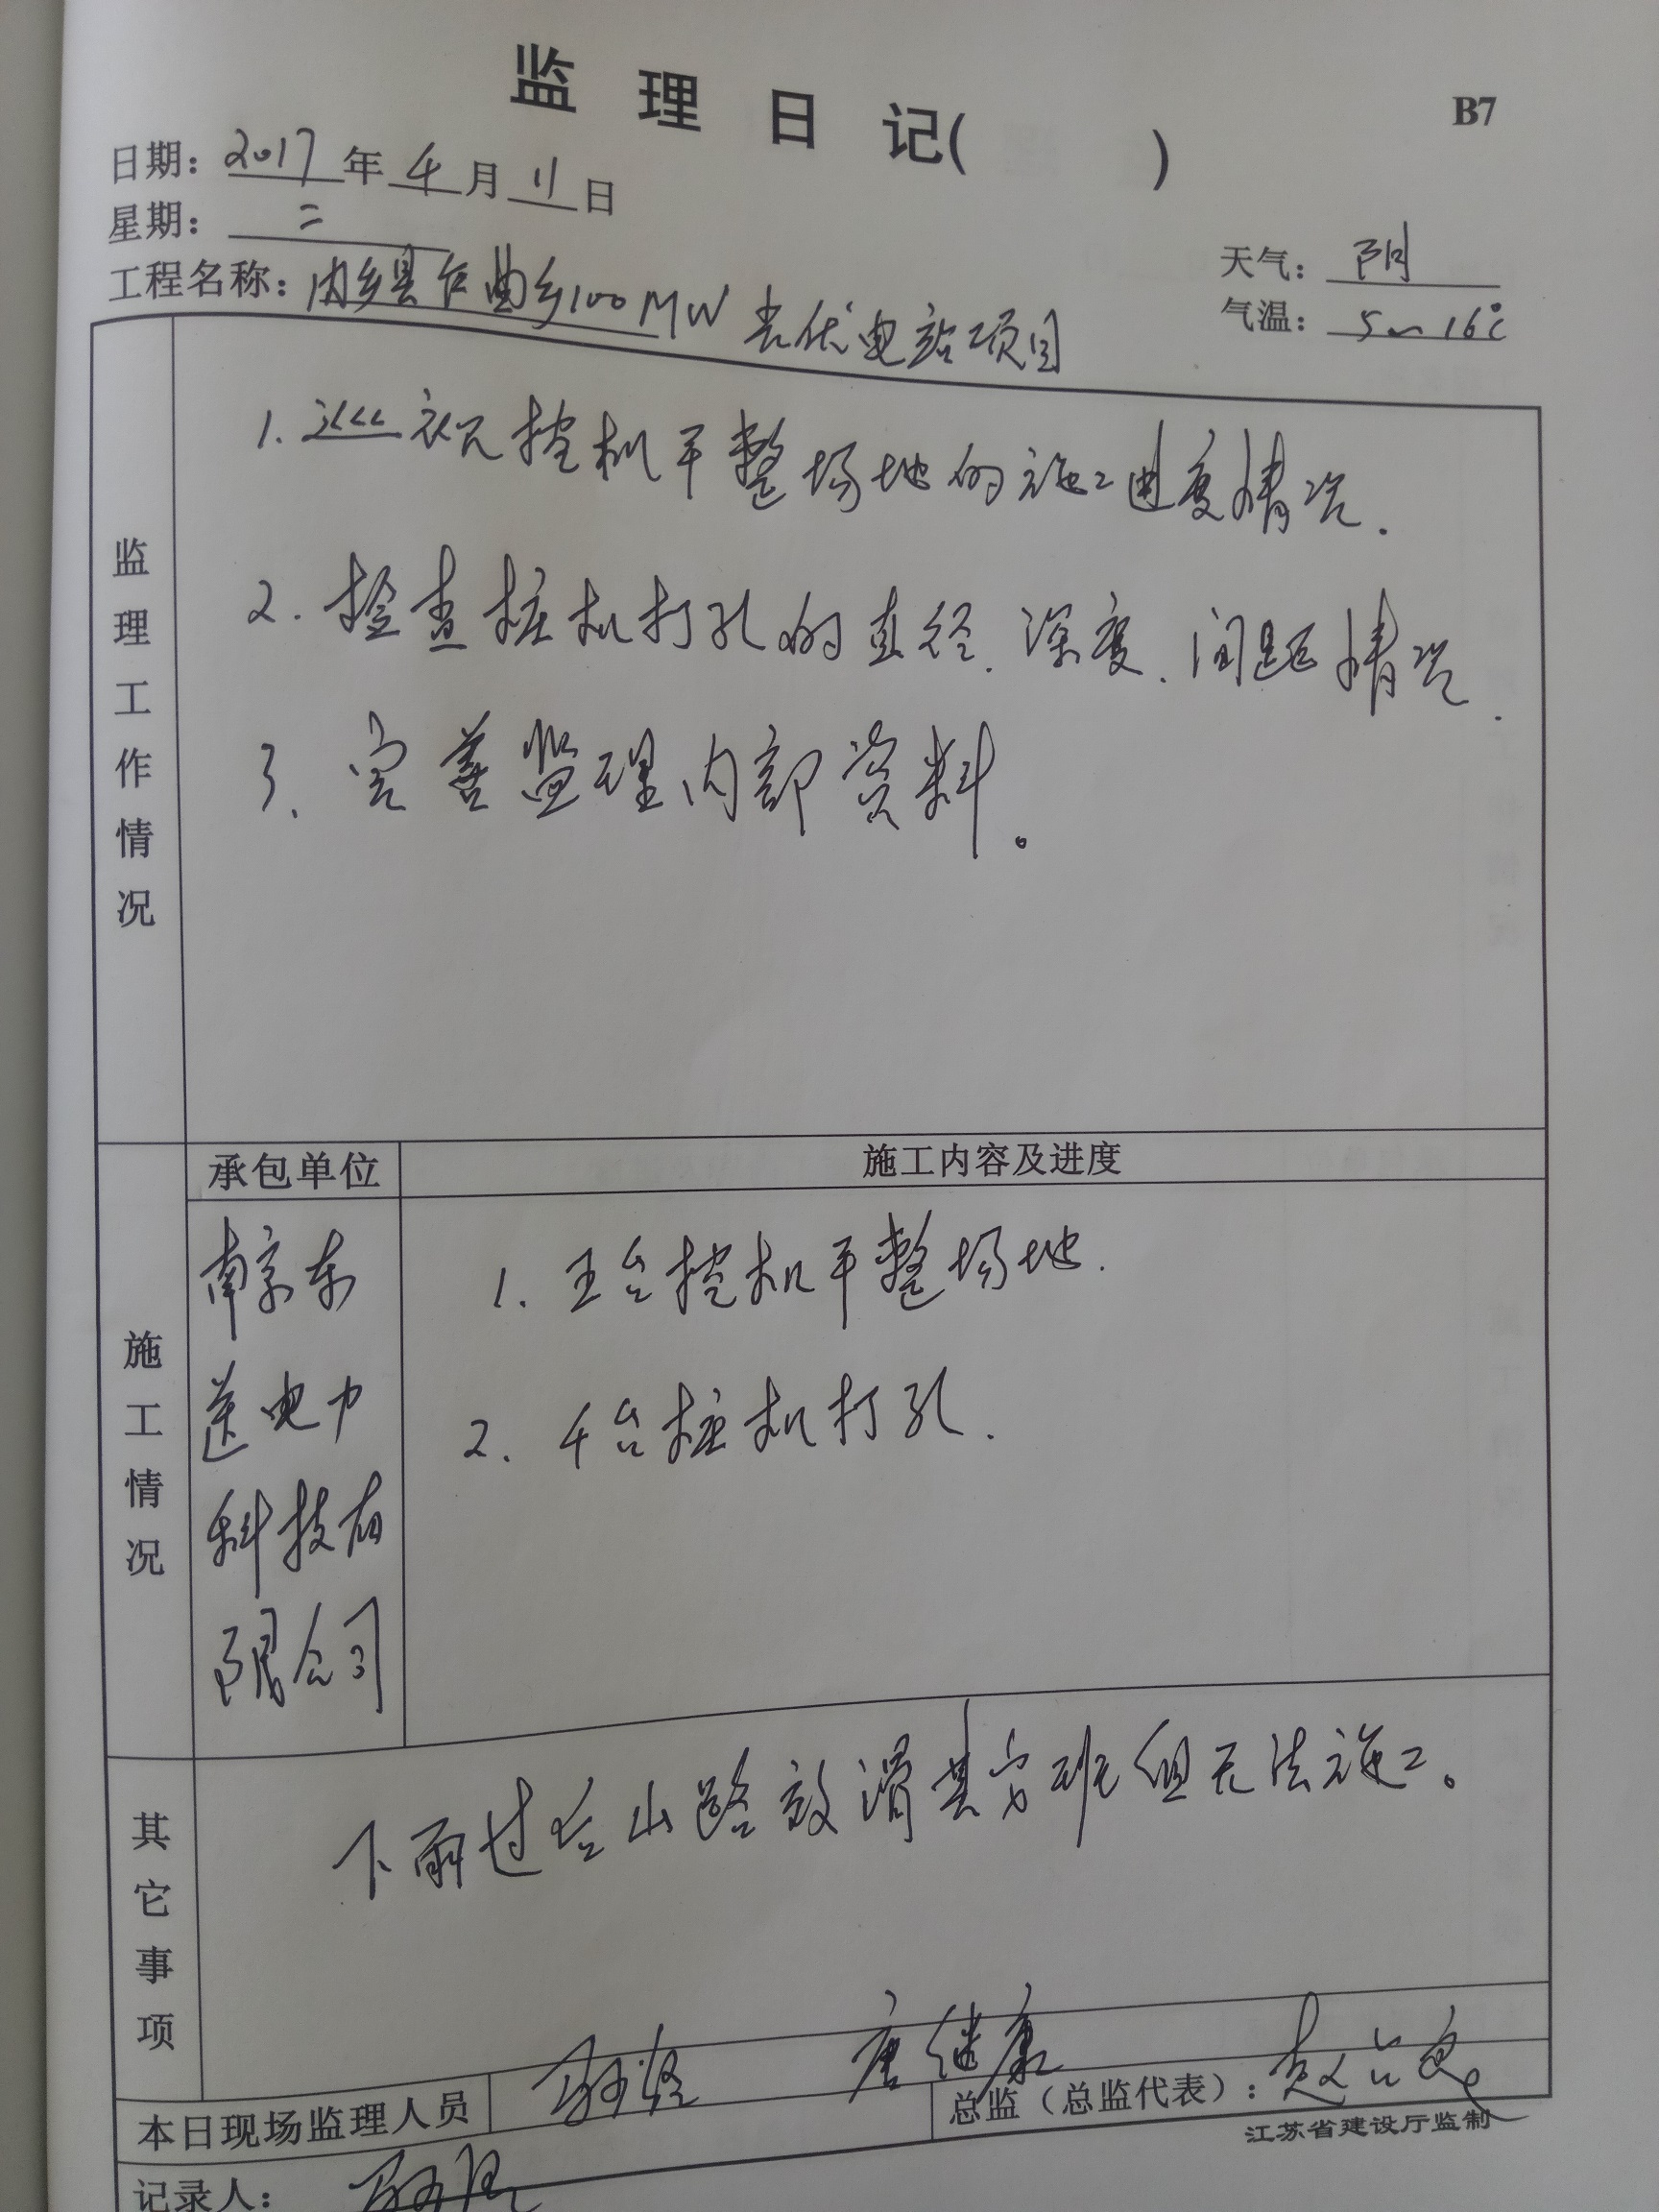 监 理 日 记( )
B7
日期：2017年4月11日
星期：二
天气：阴
工程名称：内乡县乍曲乡100MW光伏电站项目
气温：5~16℃
监理工作情况
1.巡视挖机平整场地的施工进度情况.
2.检查桩机打孔的直径.深度.间距情况.
3.完善监理内部资料。
施工情况
承包单位
施工内容及进度
南京东
送电力
科技有
限公司
1.五台挖机平整场地.
2.4台桩机打孔.
其它事项
下雨过后山路较滑其它班组无法施工。
本日现场监理人员
唐继康
总监（总监代表）：
江苏省建设厅监制
记录人：